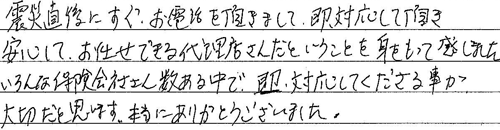 震災直後にすぐ、お電話を頂きまして、即対応して頂き
安心して、お任せできる代理店さんだということを身をもって感じました
いろんな保険会社さん数ある中で、即、対応してくださる事が
大切だと思います。本当にありがとうございました。